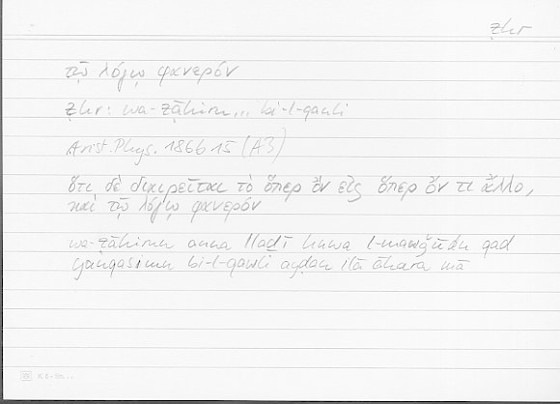 ẓhr
τῷ λόγῳ φανερόν
ẓhr: wa-ẓāhirun... bi-l-qawli
Arist. Phys. 186b15 (A3)
ὅτι δὲ διαιρεῖται τὸ ὅπερ ὂν εἰς ὅπερ ὄν τι ἄλλο,
καὶ τῷ λόγῳ φανερόν
wa-ẓāhirun anna lladī huwa l-mawǧūdu qad
yanqasimu bi-l-qawli ayḍan ilā āḫara mā